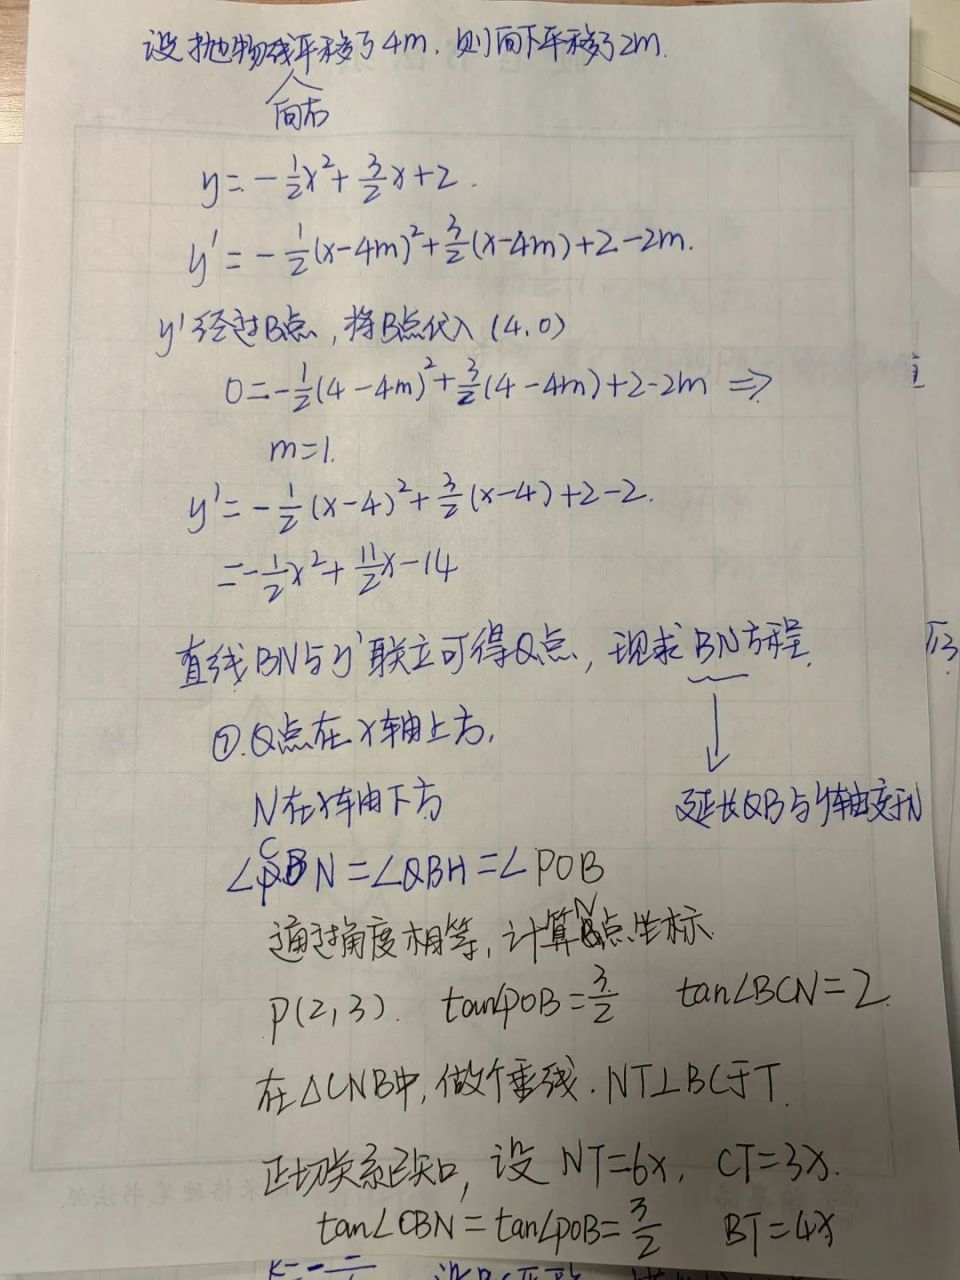 设抛物线平移了4m,则向下平移了2m.
向右
y=-1/2x²+3/2x+2.
y'=-1/2(x-4m)²+3/2(x-4m)+2-2m.
y'经过B点,将B点代入(4,0)
0=-1/2(4-4m)²+3/2(4-4m)+2-2m ⇒
m=1.
y'=-1/2(x-4)²+3/2(x-4)+2-2.
=-1/2x²+11/2x-14
直线BN与y'联立可得Q点,现求BN方程.
①.Q点在x轴上方,
N在x轴下方
延长QB与y轴交于N
∠CBN=∠QBH=∠POB
通过角度相等,计算N点坐标.
P(2,3). tan∠POB=3/2 tan∠BCN=2.
在△CNB中,做个垂线.NT⊥BC于T.
正切关系已知,设NT=6x,CT=3x.
tan∠CBN=tan∠POB=3/2 BT=4x